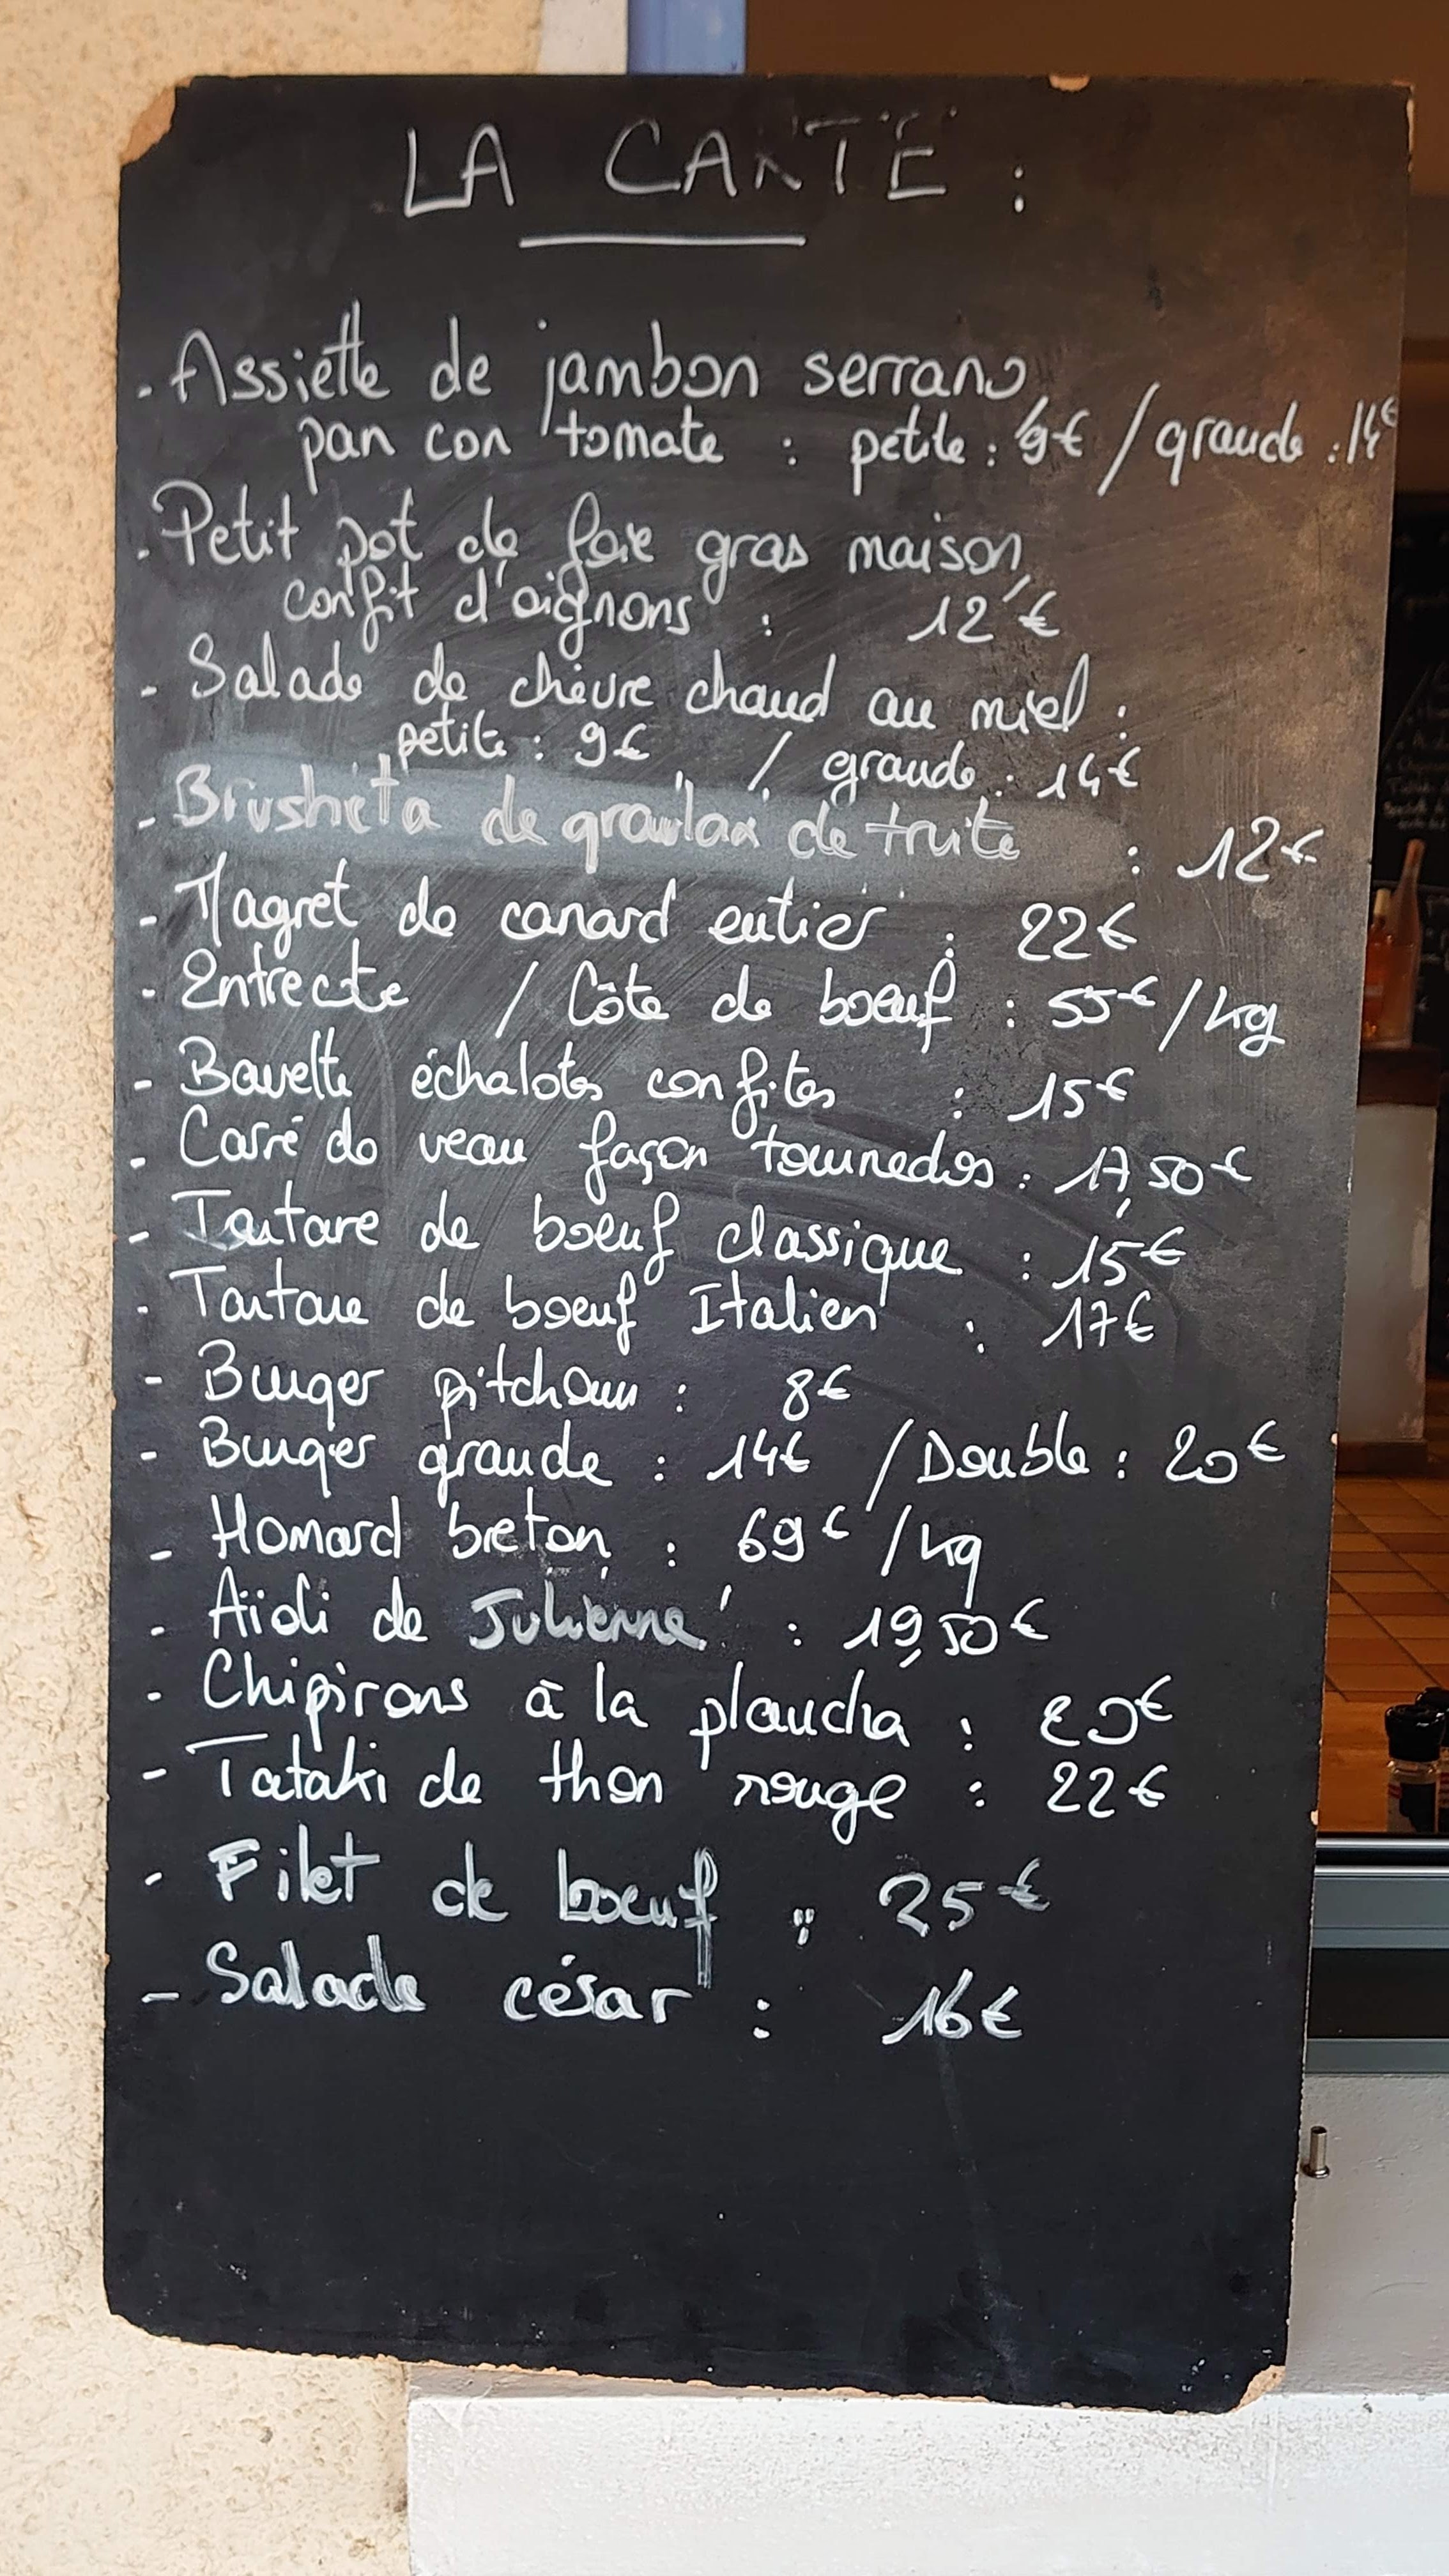 LA CARTE :
- Assiette de jambon serrano,
pan con tomate : petite : 9€ / grande : 14€
- Petit pot de foie gras maison,
confit d'oignons : 12€
- Salade de chèvre chaud au miel :
petite : 9€ / grande : 14€
- Brusheta de gravlax de truite : 12€
- Magret de canard entier : 22€
- Entrecte / Côte de boeuf : 55€/kg
- Bavette échalotes confites : 15€
- Carré de veau façon tournedos : 17,50€
- Tartare de boeuf classique : 15€
- Tartare de boeuf Italien : 17€
- Burger pitchoun : 8€
- Burger grande : 14€ / Double : 20€
- Homard breton : 69€/kg
- Aïoli de Julienne : 19,50€
- Chipirons à la plancha : 20€
- Tataki de thon rouge : 22€
- Filet de boeuf : 25€
- Salade césar : 16€